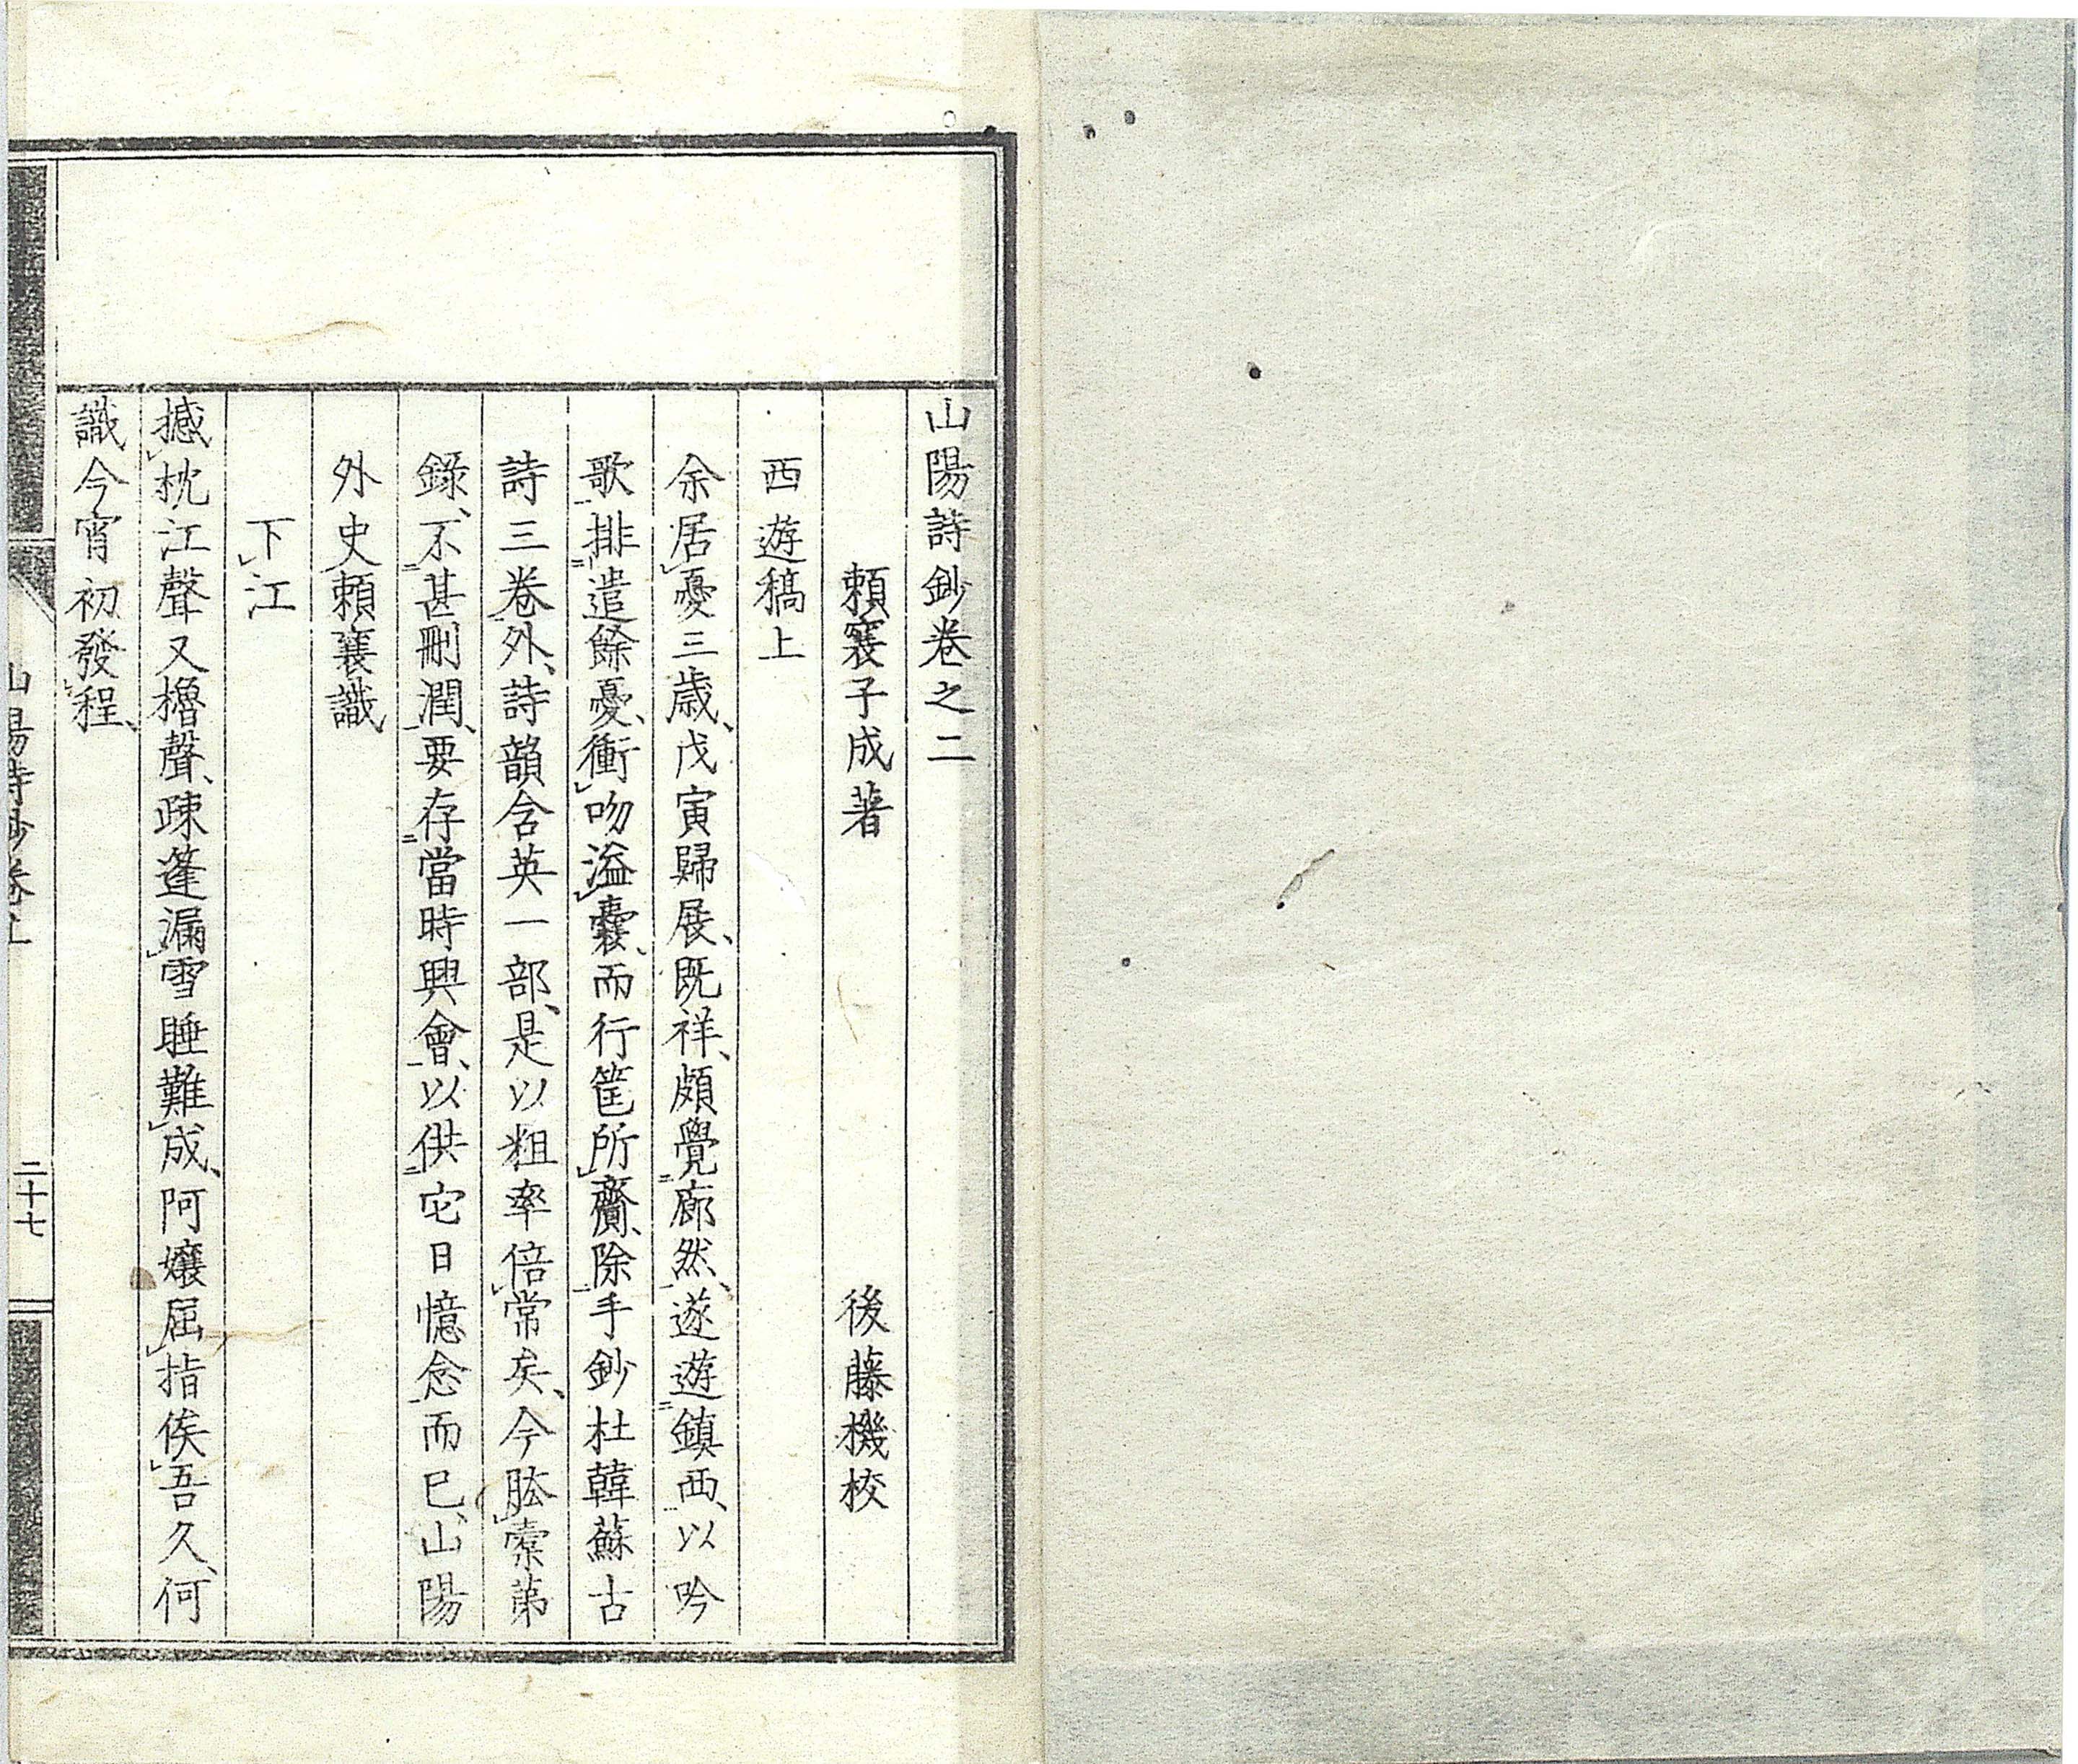 山陽詩鈔卷之二
頼襄子成著　後藤機校
西遊稿上
余居憂三歳、戊寅歸展、既祥、頗覺廊然、遂遊鎮西、以吟
歌排遣餘憂、衝吻溢囊、而行筐所齎、除手鈔杜韓蘇古
詩三卷外、詩韻含英一部、是以粗率倍常矣、今胠槖第
錄、不甚刪潤、要存當時興會、以供它日憶念而已、山陽
外史頼襄識
下江
撼枕江聲又櫓聲、疎篷漏雪睡難成、阿嬢屈指俟吾久、何
識今宵初發程、
二十七